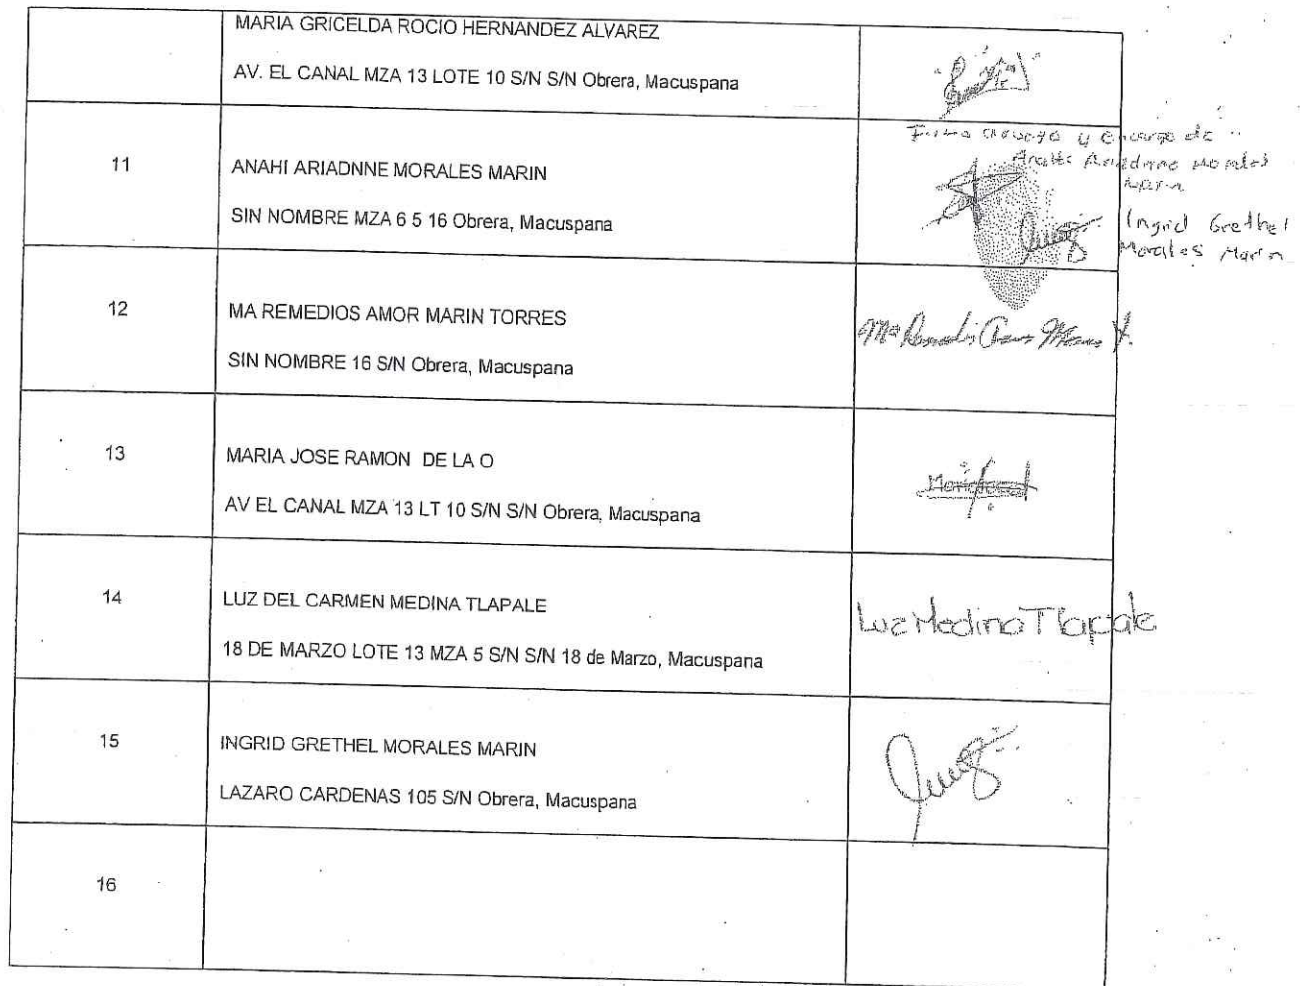 MARIA GRICELDA ROCIO HERNANDEZ ALVAREZ
AV. EL CANAL MZA 13 LOTE 10 S/N S/N Obrera, Macuspana
11
ANAHI ARIADNNE MORALES MARIN
SIN NOMBRE MZA 6 5 16 Obrera, Macuspana
Morales
Ingrid Grethel
Morales Marin
12
MA REMEDIOS AMOR MARIN TORRES
SIN NOMBRE 16 S/N Obrera, Macuspana
13
MARIA JOSE RAMON DE LA O
AV EL CANAL MZA 13 LT 10 S/N S/N Obrera, Macuspana
14
LUZ DEL CARMEN MEDINA TLAPALE
18 DE MARZO LOTE 13 MZA 5 S/N S/N 18 de Marzo, Macuspana
Luz Medina Tlapale
15
INGRID GRETHEL MORALES MARIN
LAZARO CARDENAS 105 S/N Obrera, Macuspana
16